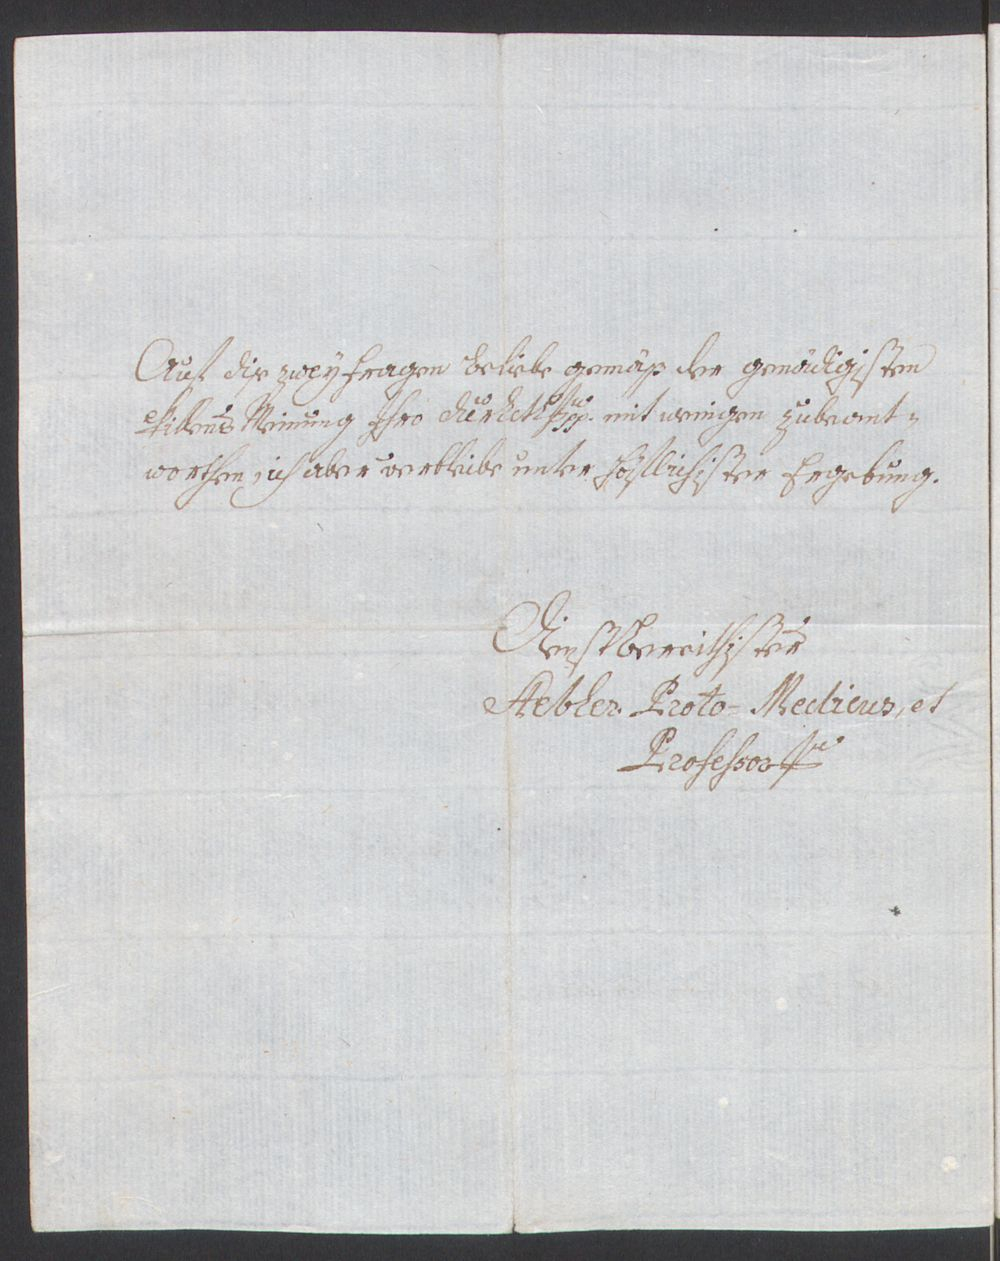 Auf die zwey fragen beliebe gemäß der genädigisten
Willens Meinung Ihro durchl. mit wenigen zubeant-
worthen, ich aber verbleibe unter höfflichister Ergebung.
Dienstbereithister
Aebler Proto-Medicus, et
Professor